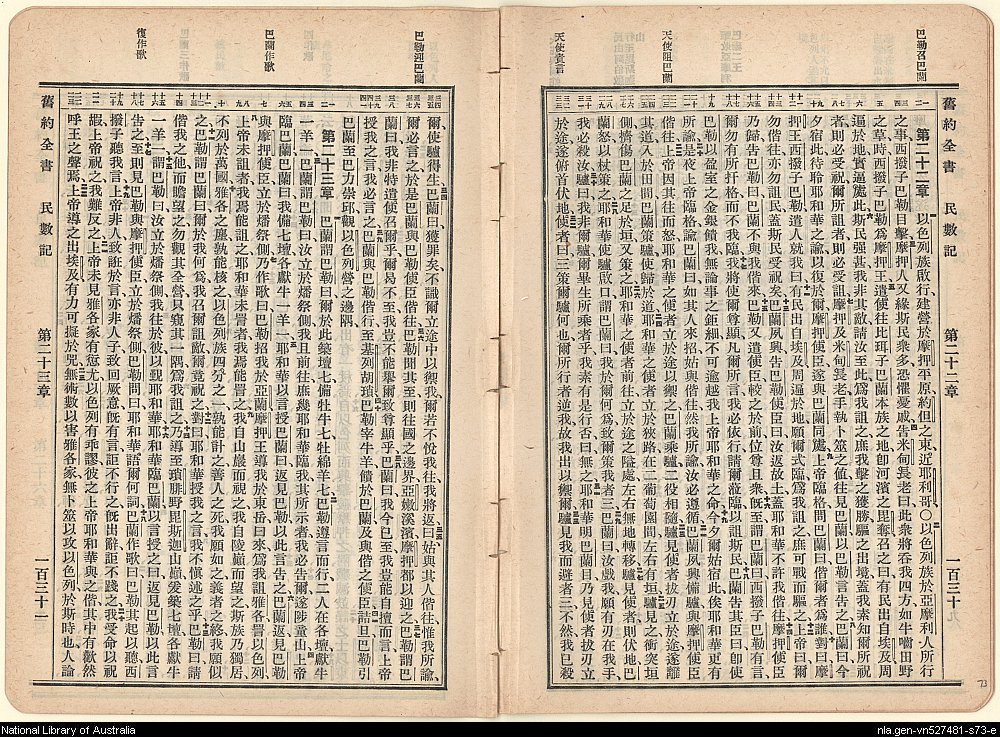 巴勒召巴蘭
天使阻巴蘭
天使責言
舊約全書 民數記 第二十二章 一百三十
第二十二章 以色列族啟行建營於摩押平原約但之東近耶利哥〇以色列族於亞摩利人所行
之事西撥子巴勒目擊摩押人又緣斯民衆多恐懼憂戚告米甸長老曰此衆將吞我四方如牛嚙田野
之草時西撥子巴勒爲摩押王遣使往比珥子巴蘭本族之地卽河濱之毘奪召之曰有民出自埃及周
遍於地實逼處此斯民强甚我非其敵請汝至此爲我詛之庶我擊之獲勝驅之出境蓋我素知爾所祝
者則必受祝爾所詛者則必受詛摩押及米甸長老手執卜筮之値往見巴蘭以巴勒言告之巴蘭曰今
夕宿此待聆耶和華之諭以復於爾摩押使臣遂與巴蘭同處上帝臨格問巴蘭曰偕爾者爲誰對曰摩
押王西撥子巴勒遣人就我曰有民出自埃及周遍於地願爾式臨爲我詛之庶可戰而驅之上帝曰爾
勿偕往亦勿詛民蓋斯民受祝矣巴蘭夙興告巴勒使臣曰汝返故土蓋耶和華不許我偕往摩押使臣
乃歸告巴勒曰巴蘭不與我偕來巴勒又遣使臣較之於前位尊且衆旣至謂巴蘭曰西撥子巴勒有言
爾勿有所扞格而不我臨我將使爾尊顯凡爾所言我必依行請爾涖臨以詛斯民巴蘭告其臣曰卽使
巴勒以盈室之金銀餽我無論事之鉅細不可逾越我上帝耶和華之命今夕爾姑宿此俟耶和華更有
所諭是夜上帝臨格諭巴蘭曰如其人來招始與偕往然我所諭汝必遵循巴蘭夙興備驢與摩押使臣
偕往上帝因其往而怒耶和華之使者立於途以禦之巴蘭乘驢二役相隨驢見使者拔刃立於途遂離
其道入於田間巴蘭策驢使歸於道耶和華之使者立於狹路在二葡萄園間左右有垣驢見之衝突垣
側擠傷巴蘭之足於垣又策之耶和華之使者前往立於途之隘處左右無地轉移驢見使者則伏地巴
蘭怒以杖策之耶和華使驢啟口謂巴蘭曰我於爾何爲致爾策我者三巴蘭曰汝戲我願有刃在我手
我必殺汝驢曰我非爾畢生所乘者乎我素有是行否曰無之耶和華明巴蘭目乃見使者拔刃立
於途遂俯首伏地使者曰三策爾驢何也爾所行者逆我故我出以禦爾驢見我而避者三不然我已殺
73
巴勒迎巴蘭
巴蘭作歌
復作歌
爾使驢得生巴蘭曰獲罪矣不識爾立途中以禦我爾若不悅我往我將返曰姑與其人偕往惟我所諭
爾必言之於是巴蘭與巴勒使臣偕往巴勒聞其至則往國之邊界亞嫩溪濱摩押都以迎之巴勒謂巴
蘭曰我非特遣使召爾乎爾曷不至我豈不能舉爾致尊顯乎巴蘭曰我今已至我豈能自擅而言上帝
授我之言我必言之巴蘭與巴勒偕行至基列胡瑣巴勒宰牛羊餽於巴蘭及與偕之使臣詰旦巴勒引
巴蘭至巴力崇邱觀以色列營之邊隅
第二十三章 巴蘭謂巴勒曰爾於此築壇七備牡牛七牡綿羊七巴勒遵言而行二人在各壇獻牛
一羊一巴蘭謂巴勒曰汝立於燔祭側我且前往庶幾耶和華臨我其所示者我必告爾遂陟童山上帝
臨巴蘭巴蘭曰我備七壇各獻牛一羊一耶和華以言授巴蘭曰返見巴勒以此言告之巴蘭返見巴勒
與摩押使臣立於燔祭側乃作歌曰巴勒招我於亞蘭摩押王導我於東岳曰來爲我詛雅各詈以色列
上帝未詛者我焉能詛之耶和華未詈者我焉能詈之我自山巖而視之我自陵巓而望之斯族乃獨居
不列於萬國雅各之塵孰能核之以色列族四分之一孰能計之善人之死我願如之義者之終我願似
之巴勒謂巴蘭曰爾於我何爲我召爾詛敵爾竟祝之對曰耶和華授我之言我不愼述之乎巴勒曰請
偕我之他而瞻望之勿觀其全營具窺其一隅爲我詛之乃導至瑣腓野毘斯迦山巓爰築七壇各獻牛
一羊一謂巴勒曰汝立於燔祭側我往於彼以覲耶和華耶和華臨巴蘭以言授之曰返見巴勒以此言
告之至則見巴勒與摩押使臣立於燔祭側巴勒問曰耶和華語爾何詞巴蘭作歌曰巴勒其起以聽西
撥子聽我言上帝非人致誑於言亦非人子致回厥意旣有言詎不行之旣出辭詎不踐之我受命以祝
嘏上帝祝之我難反之上帝未見雅各家有愆尤以色列有乖謬彼之上帝耶和華與之偕其中有歡然
呼王之聲焉上帝導之出埃及有力可擬於兕無術數以害雅各家無卜筮以攻以色列於斯時也人論
舊約全書 民數記 第二十三章 一百三十一
National Library of Australia
nla.gen-vn527481-s73-e